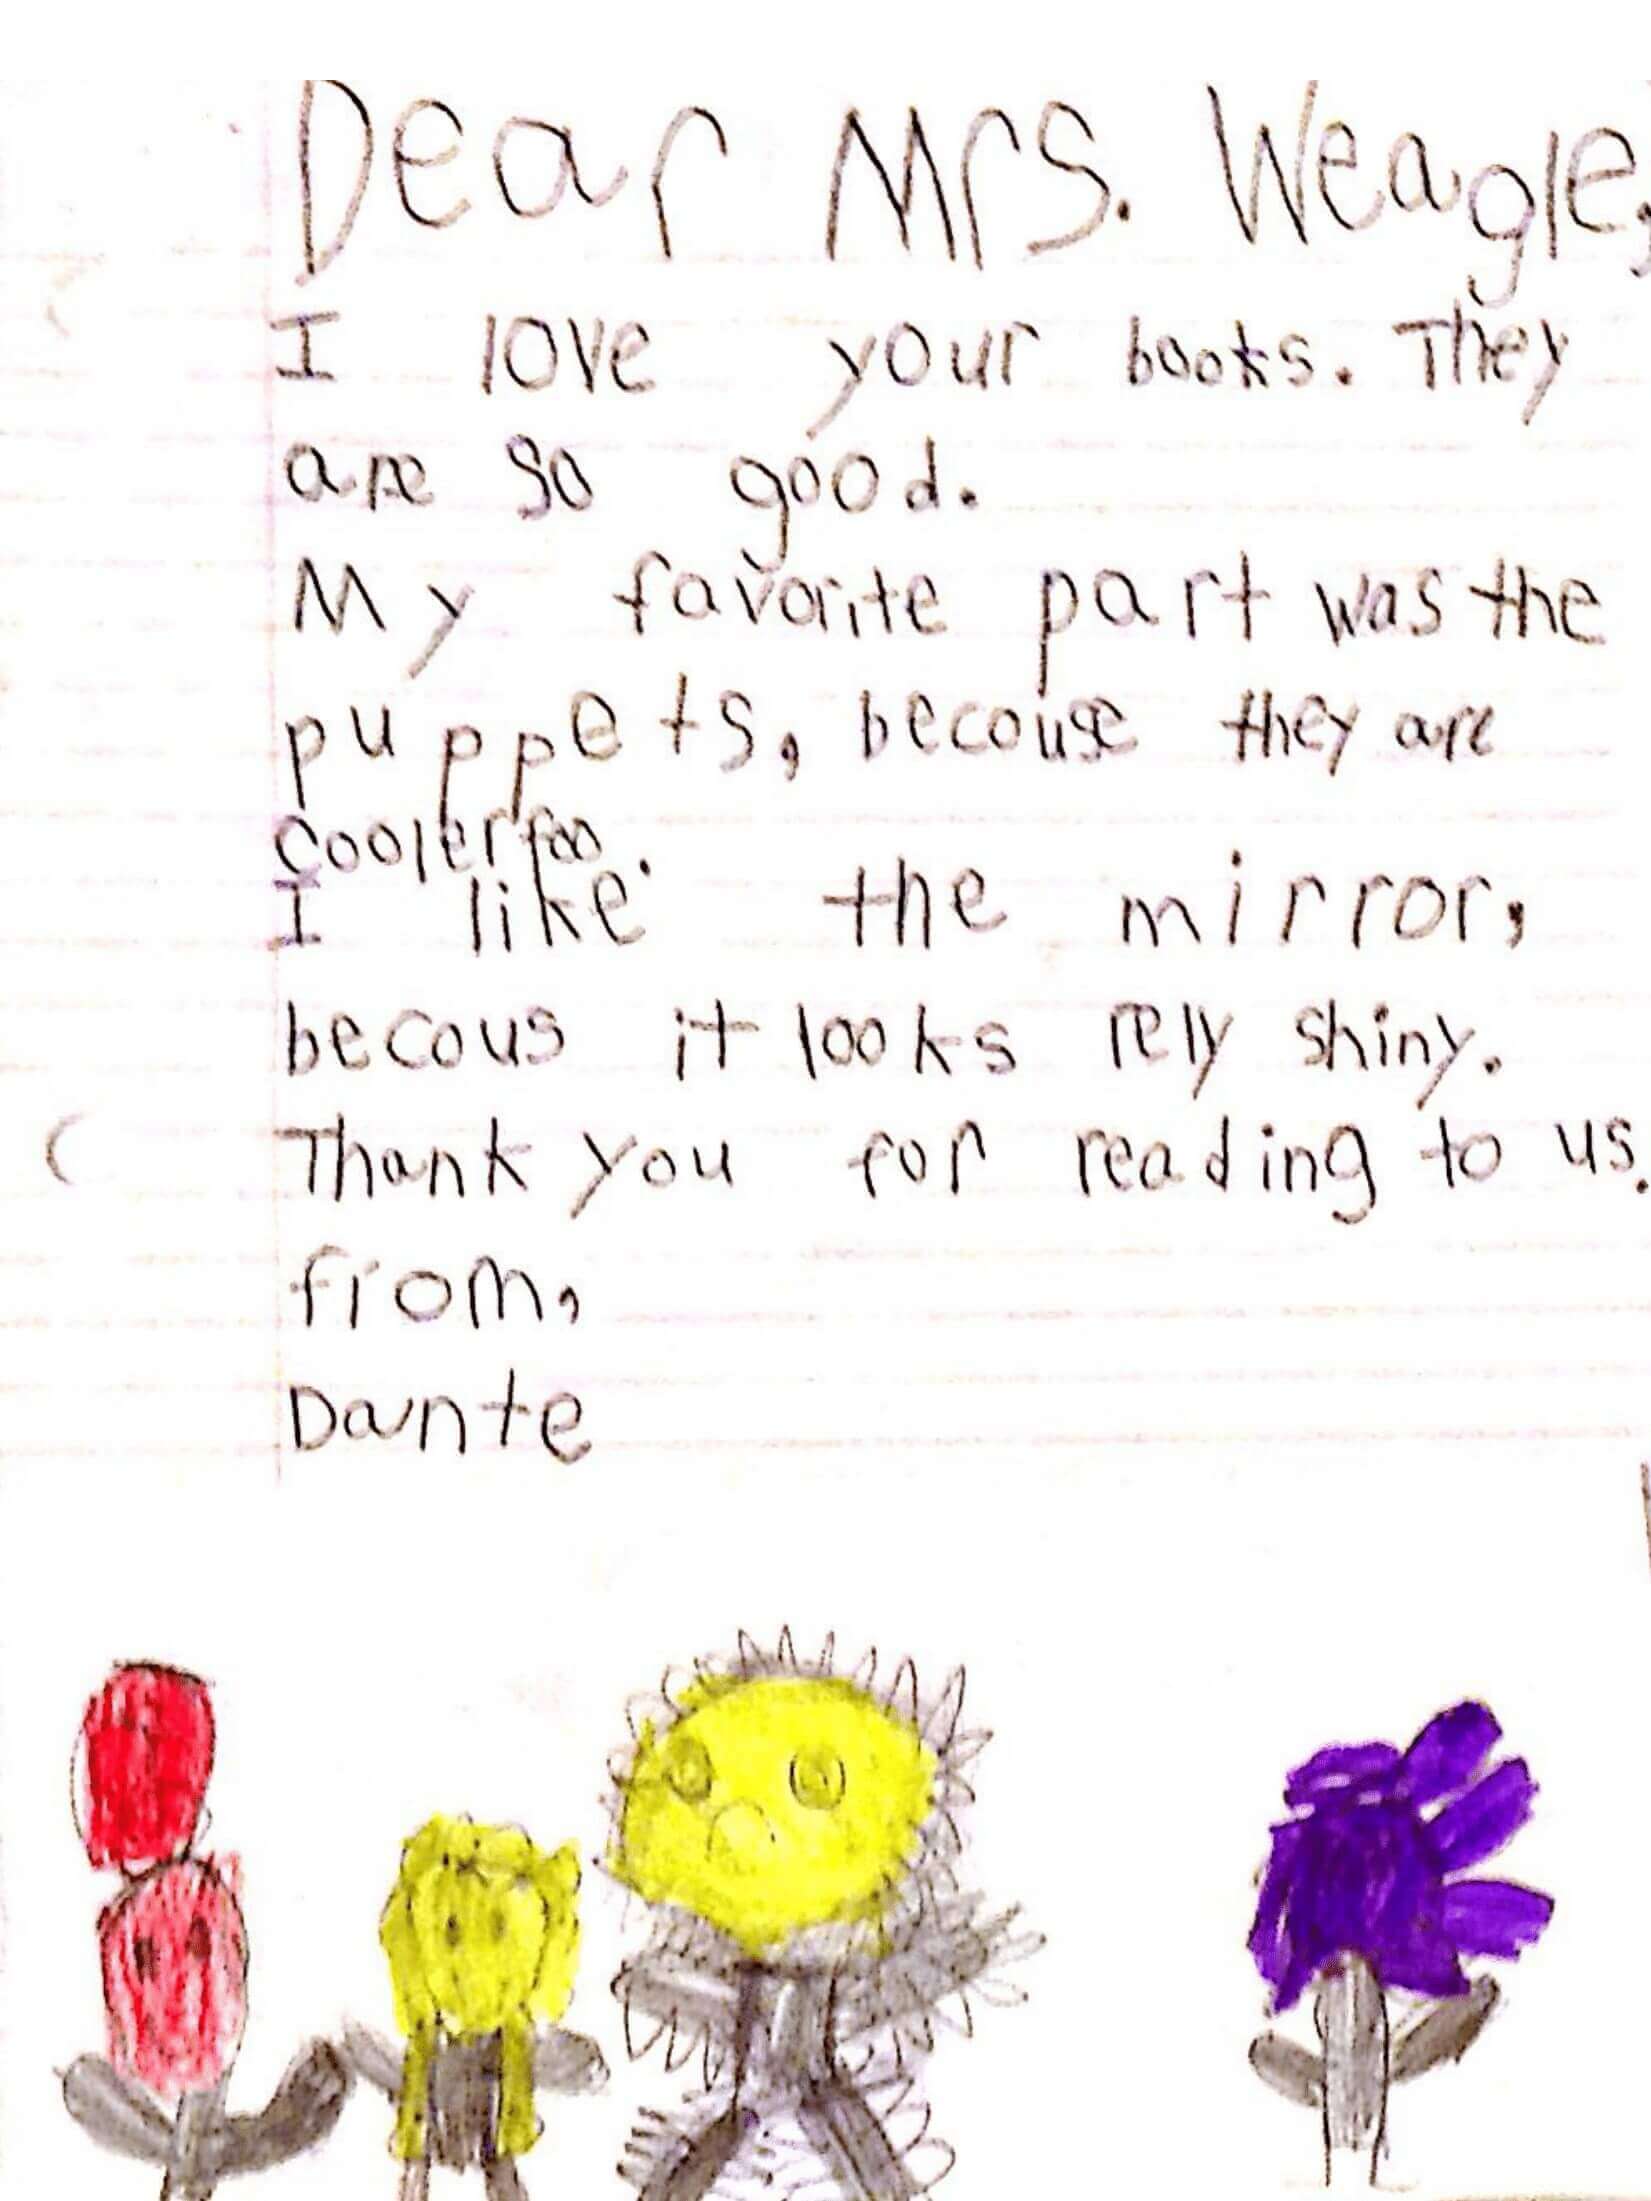 Dear Mrs. Weagle,
I love your books. They
are so good.
My favorite part was the
puppets, becouse they are
cooler foo.
I like the mirror,
becous it looks rely shiny.
Thank you for reading to us.
from,
Dante